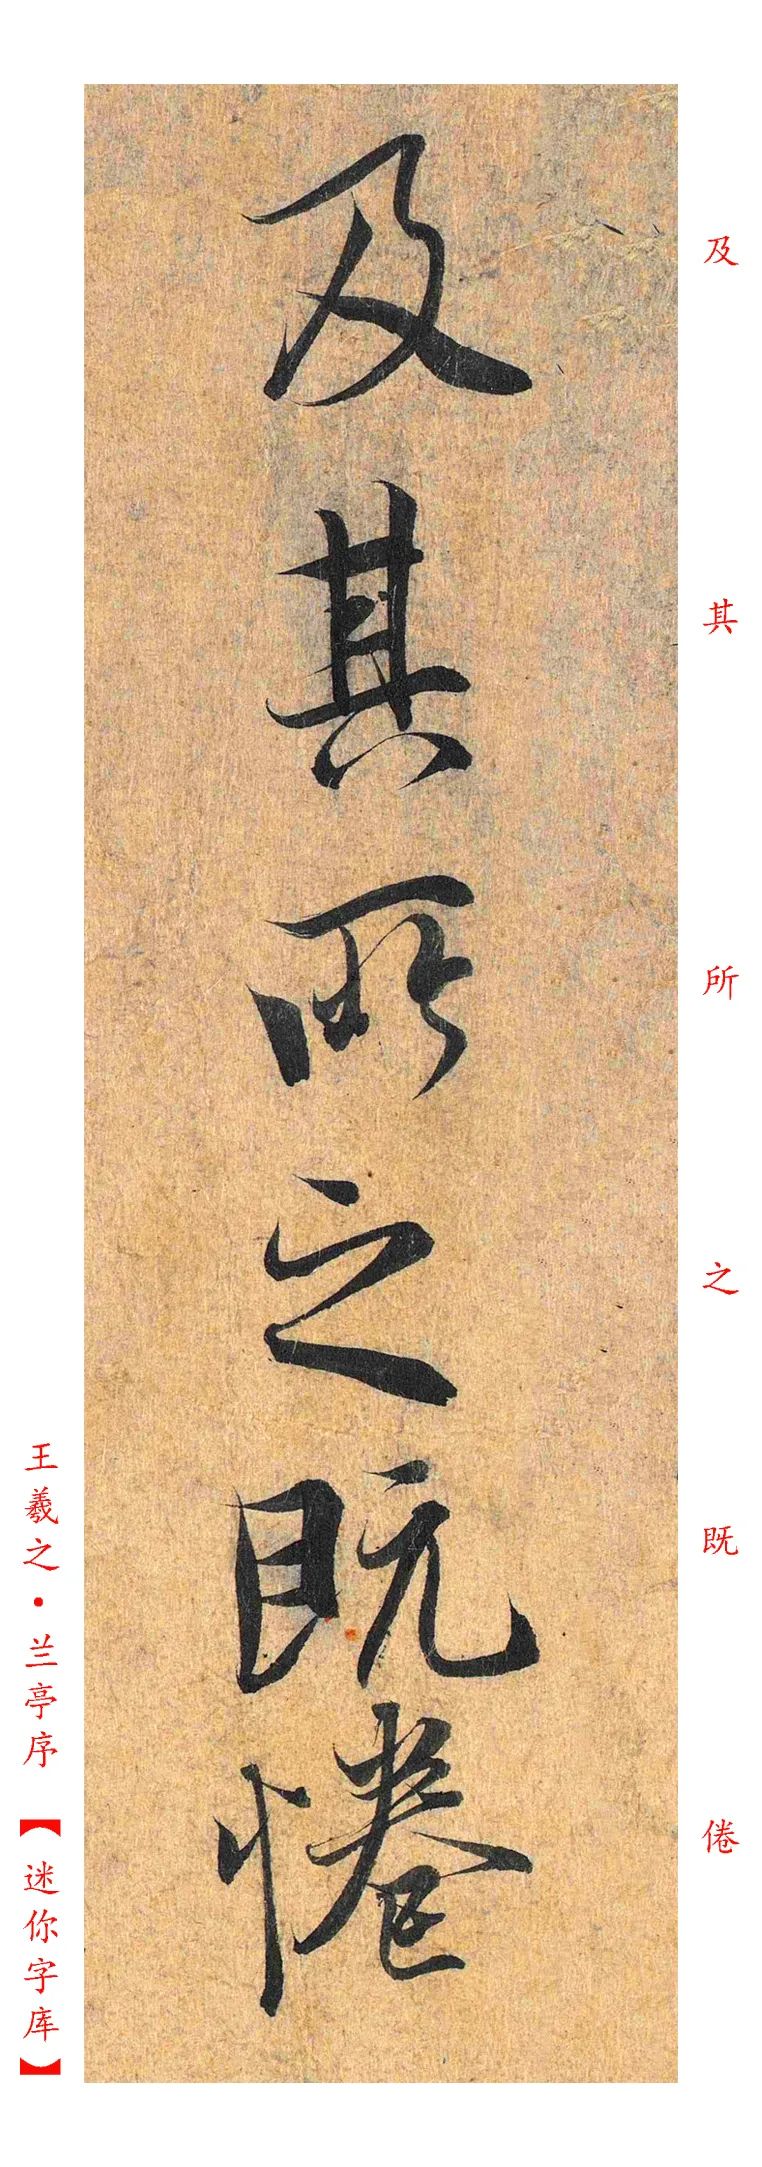 及其所之既惓
及其所之既倦
王羲之·兰亭序【迷你字库】